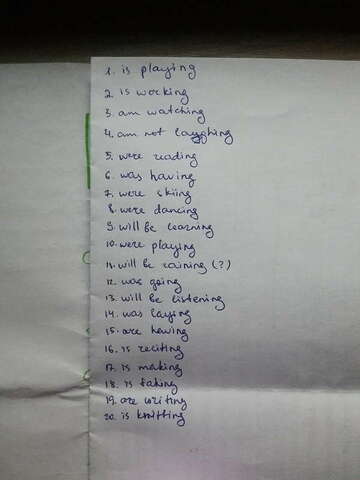 1. is playing
2. is working
3. am watching
4. am not laughing
5. were reading
6. was having
7. were skiing
8. were dancing
9. will be learning
10. were playing
11. will be raining (?)
12. was going
13. will be listening
14. was laying
15. are having
16. is reciting
17. is making
18. is taking
19. are writing
20. is knitting